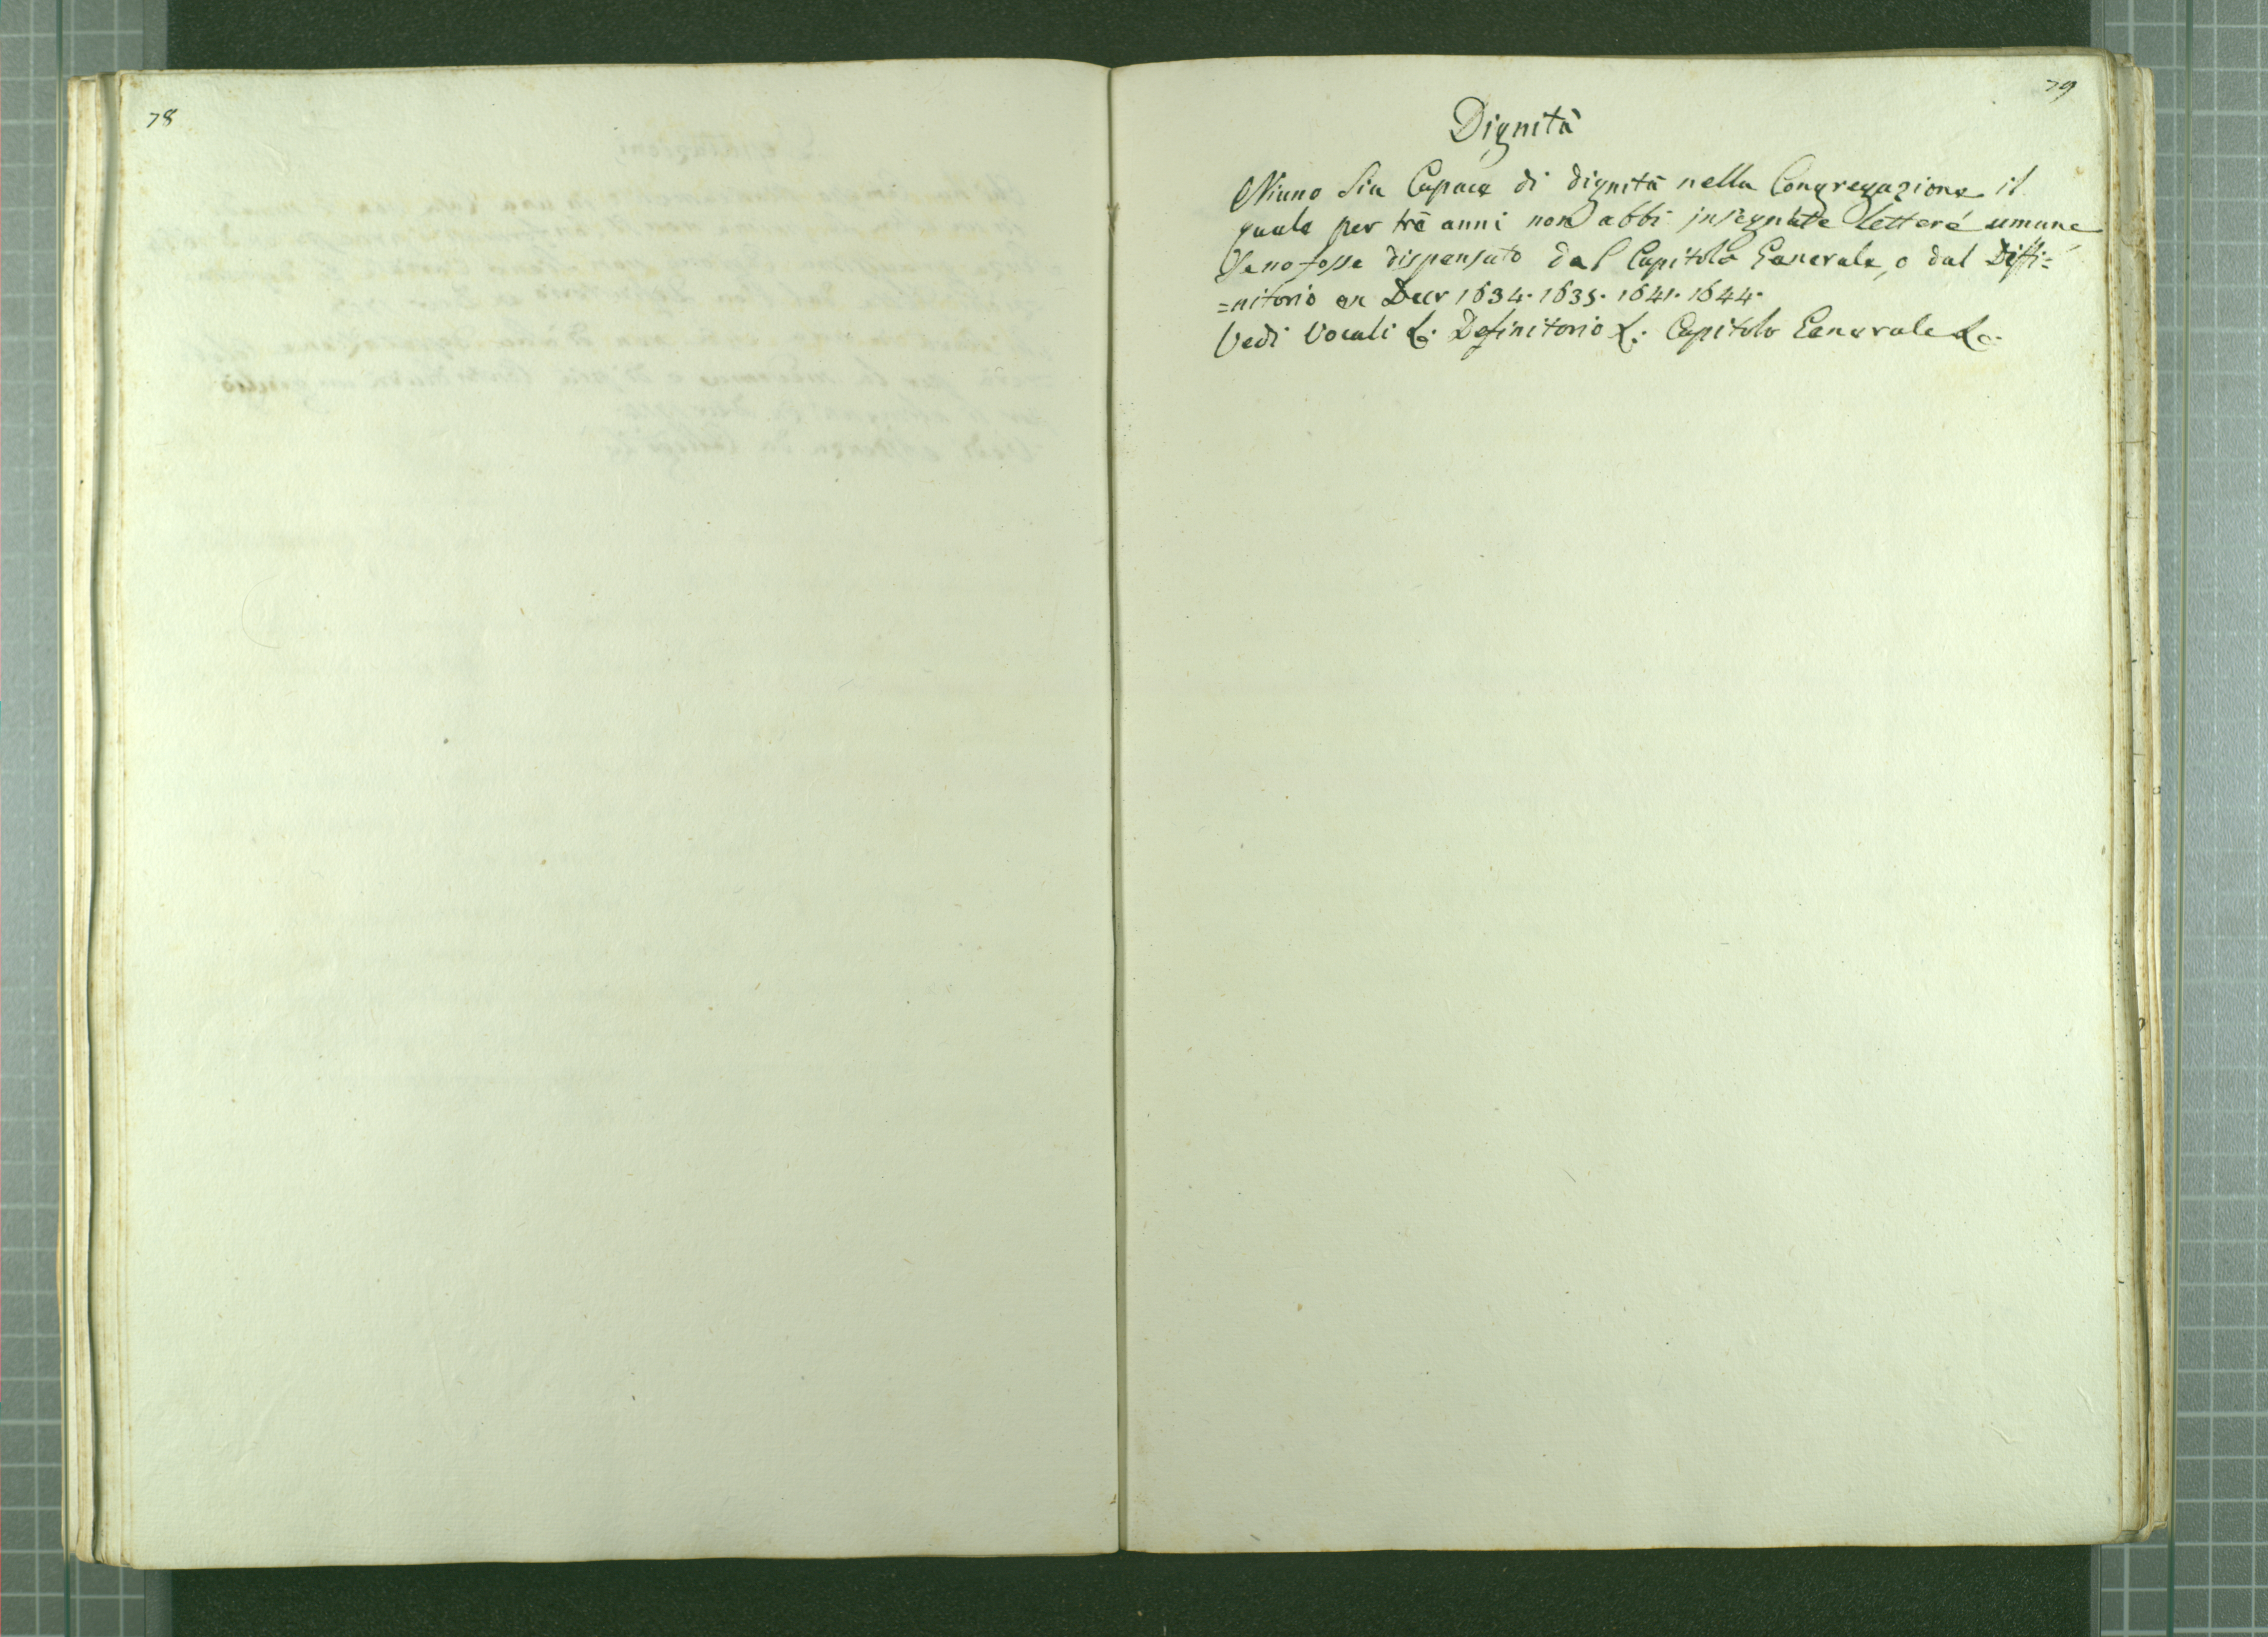 78
79
Dignità
Niuno sia Capace di dignità nella Congregazione il
quale per trè anni non abbi insegnate lettere umane
se no fosse dispensato dal Capitolo Generale, o dal Diffi=
=nitorio ex Decr 1634. 1635. 1641. 1644.
Vedi Vocali &. Definitorio &. Capitolo Generale &c.